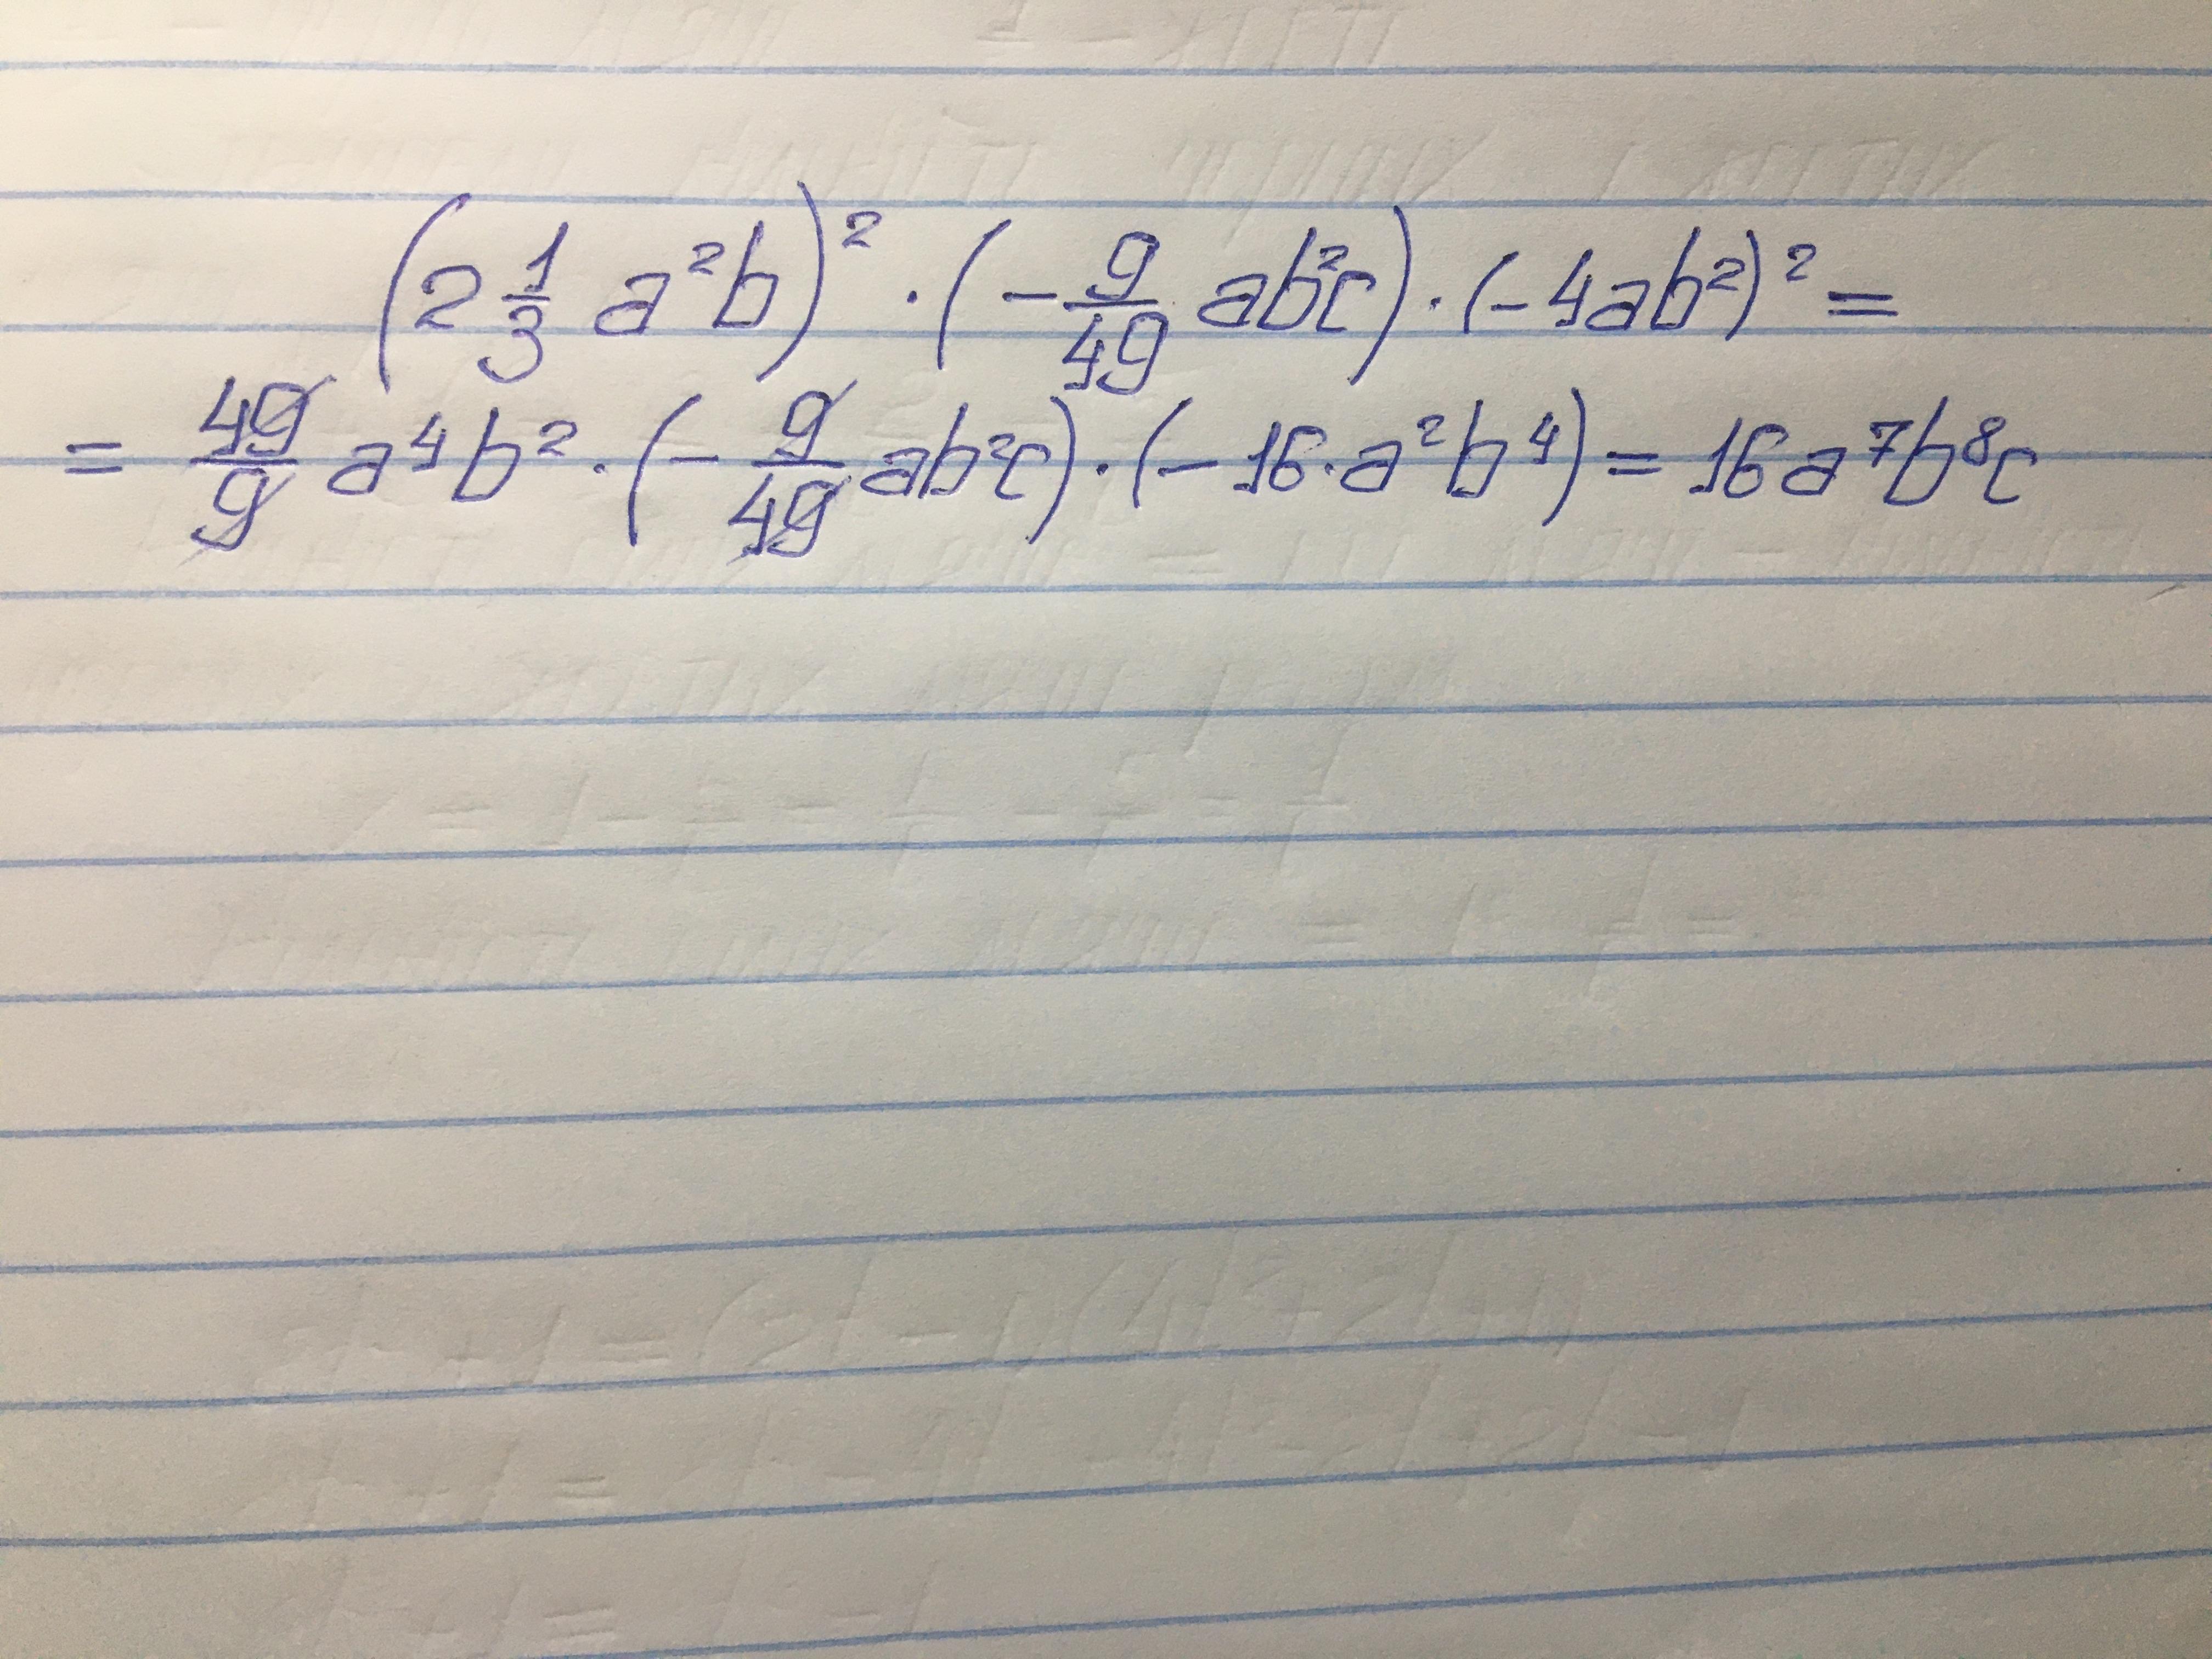 (2 1/3 a²b)² · (- 9/49 ab²c) · (-4ab²)² =
= 49/9 a⁴b² · (- 9/49 ab²c) · (-16·a²b⁴) = 16a⁷b⁸c